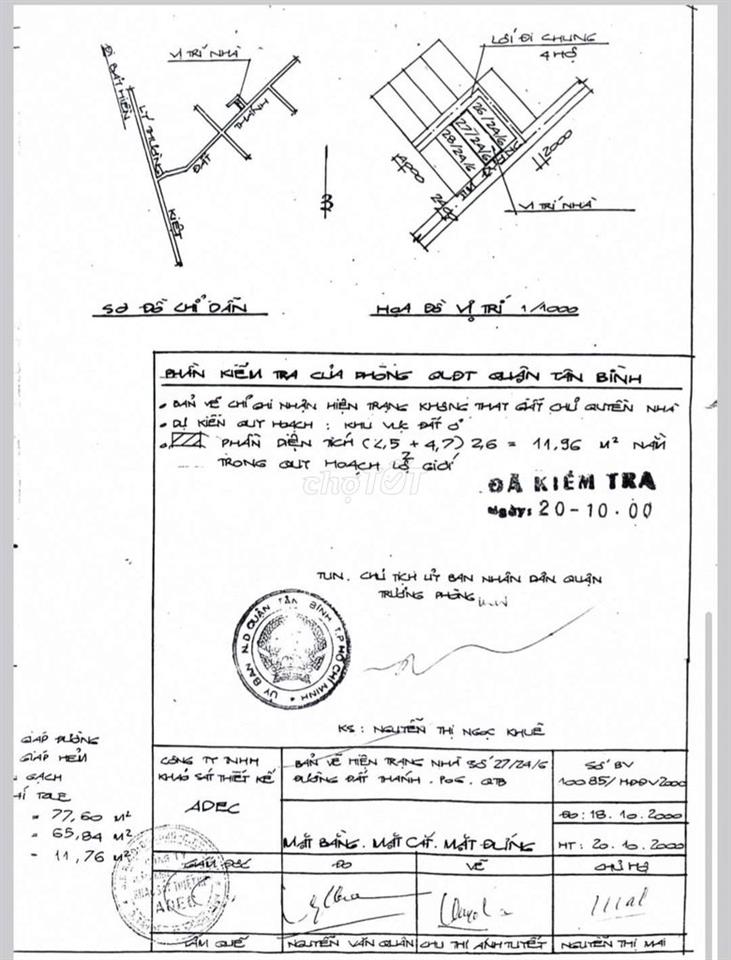 LỐI ĐI CHUNG
4 HỘ
VỊ TRÍ NHÀ
BẢY HIỀN
LÝ THƯỜNG
KIỆT
ĐẤT
THÁNH
26/2A/6
27/2A/6
28/2A/6
4000
12000
VỊ TRÍ NHÀ
SƠ ĐỒ CHỈ DẪN
HỌA ĐỒ VỊ TRÍ 1/1000
PHẦN KIỂM TRA CỦA PHÒNG QLĐT QUẬN TÂN BÌNH
• BẢN VẼ CHỈ GHI NHẬN HIỆN TRẠNG KHÔNG THAY GIẤY CHỦ QUYỀN NHÀ
• DỰ KIẾN QUY HOẠCH : KHU VỰC ĐẤT Ở
• PHẦN DIỆN TÍCH (4,5 + 4,7) 2,6 = 11,96 M² NẰM
2
TRONG QUY HOẠCH LỘ GIỚI
chợTỐT
ĐÃ KIỂM TRA
Ngày: 20-10.00
TUN. CHỦ TỊCH ỦY BAN NHÂN DÂN QUẬN
TRƯỞNG PHÒNG
ỦY BAN N.D QUẬN TÂN BÌNH T.P HỒ CHÍ MINH
KS : NGUYỄN THỊ NGỌC KHUÊ
GIÁP ĐƯỜNG
GIÁP HẺM
GẠCH
TOLE
= 77,60 M²
= 65,84 M²
- 11,76 M²
CÔNG TY TNHH
KHẢO SÁT THIẾT KẾ
ADEC
BẢN VẼ HIỆN TRẠNG NHÀ SỐ 27/2A/6
ĐƯỜNG ĐẤT THÁNH . P06 . QTB
SỐ BV
10085/HĐĐV2000
ĐO : 18.10.2000
MẶT BẰNG. MẶT CẮT. MẶT ĐỨNG
HT : 20.10.2000
GIÁM ĐỐC
ĐO
VẼ
CHỦ HỘ
ADEC
LÂM QUẾ
NGUYỄN VĂN QUÂN
CHU THỊ ÁNH TUYẾT
NGUYỄN THỊ MAI